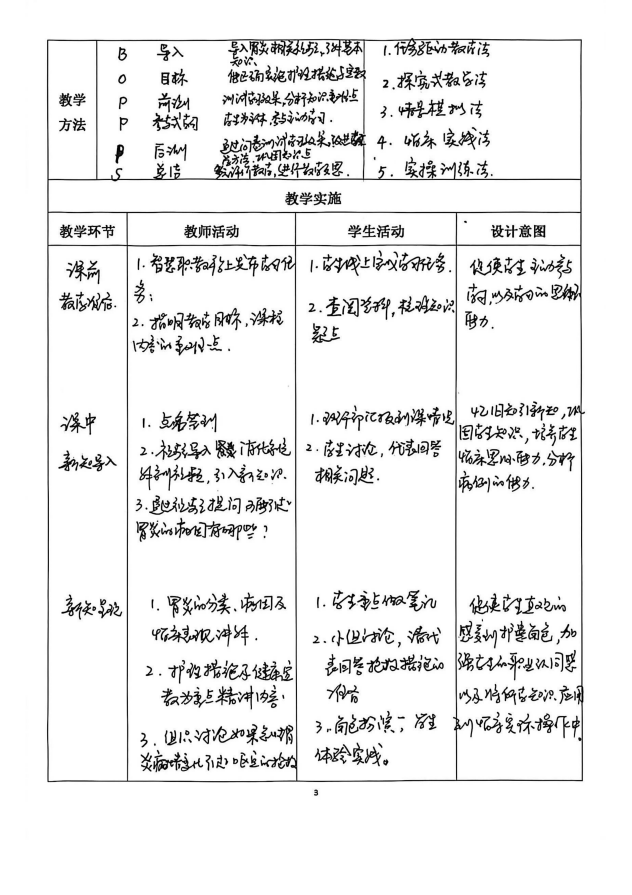 教学
方法
B 导入 导入胃炎相关病例,了解基本
知识
O 目标 能正确实施护理措施与宣教
P 前测 测试学习效果,分析知识重难点
P 参与式学习 学生为主体,参与主动学习.
P 后测 通过问卷测试学习效果,改进教
学方法,巩固知识点
S 总结 教师评教学,进行教学反思.
1.任务驱动教学法
2.探究式教学法
3.情景模拟法
4.临床实践法
5.实操训练法.
教学实施
教学环节 教师活动 学生活动 设计意图
课前
教学准备
1.智慧职教平台上发布学习任
务;
2.指明教学目标,课程
内容的重难点.
1.学生线上完成学习任务.
2.查阅资料,梳理知识
疑点
促使学生主动参与
学习,以及学习的思维
能力.
课中
新知导入
1.点名签到
2.病例导入 消化系统
疾病,引入新知识.
3.通过病例提问
胃炎的病因有哪些?
1.班干部汇报到课情况
2.学生讨论,代表回答
相关问题.
以旧知引新知,巩
固学生知识,培养学生
临床思维能力,分析
病例的能力.
新知呈现
1.胃炎的分类、病因及
临床表现讲解.
2.护理措施及健康宣
教为重点精讲内容.
3.组织讨论如果急性胃
炎病情变化引起呕血的抢救
1.学生重点做笔记
2.小组讨论,请代
表回答抢救措施的
内容
3.角色扮演,学生
体验实践。
促使学生直观的
感受到护患角色,加
强学生的职业认同感
以及将所学知识应用
到临床实际操作中.
3